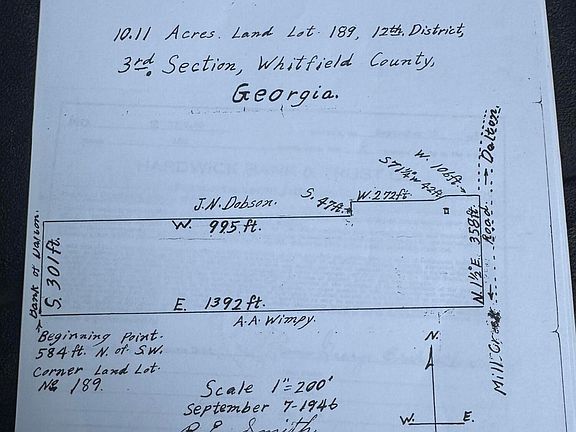 10.11 Acres. Land Lot 189, 12th, District,
3rd. Section, Whitfield County,
Georgia.
W. 106ft.
S 71 1/4° W 42ft
W. 272ft.
S. 47ft.
J.N. Dobson.
W. 995 ft.
Bank of Dalton.
S. 301 ft.
N. 1 1/2° E. 358 ft.
Mill Creek Road Dalton.
E. 1392 ft.
A.A. Wimpy.
Beginning Point.
584 ft. N. of S.W.
Corner Land Lot.
No 189.
Scale 1"=200'
September 7-1946
R.E. Smith.
N.
W. E.